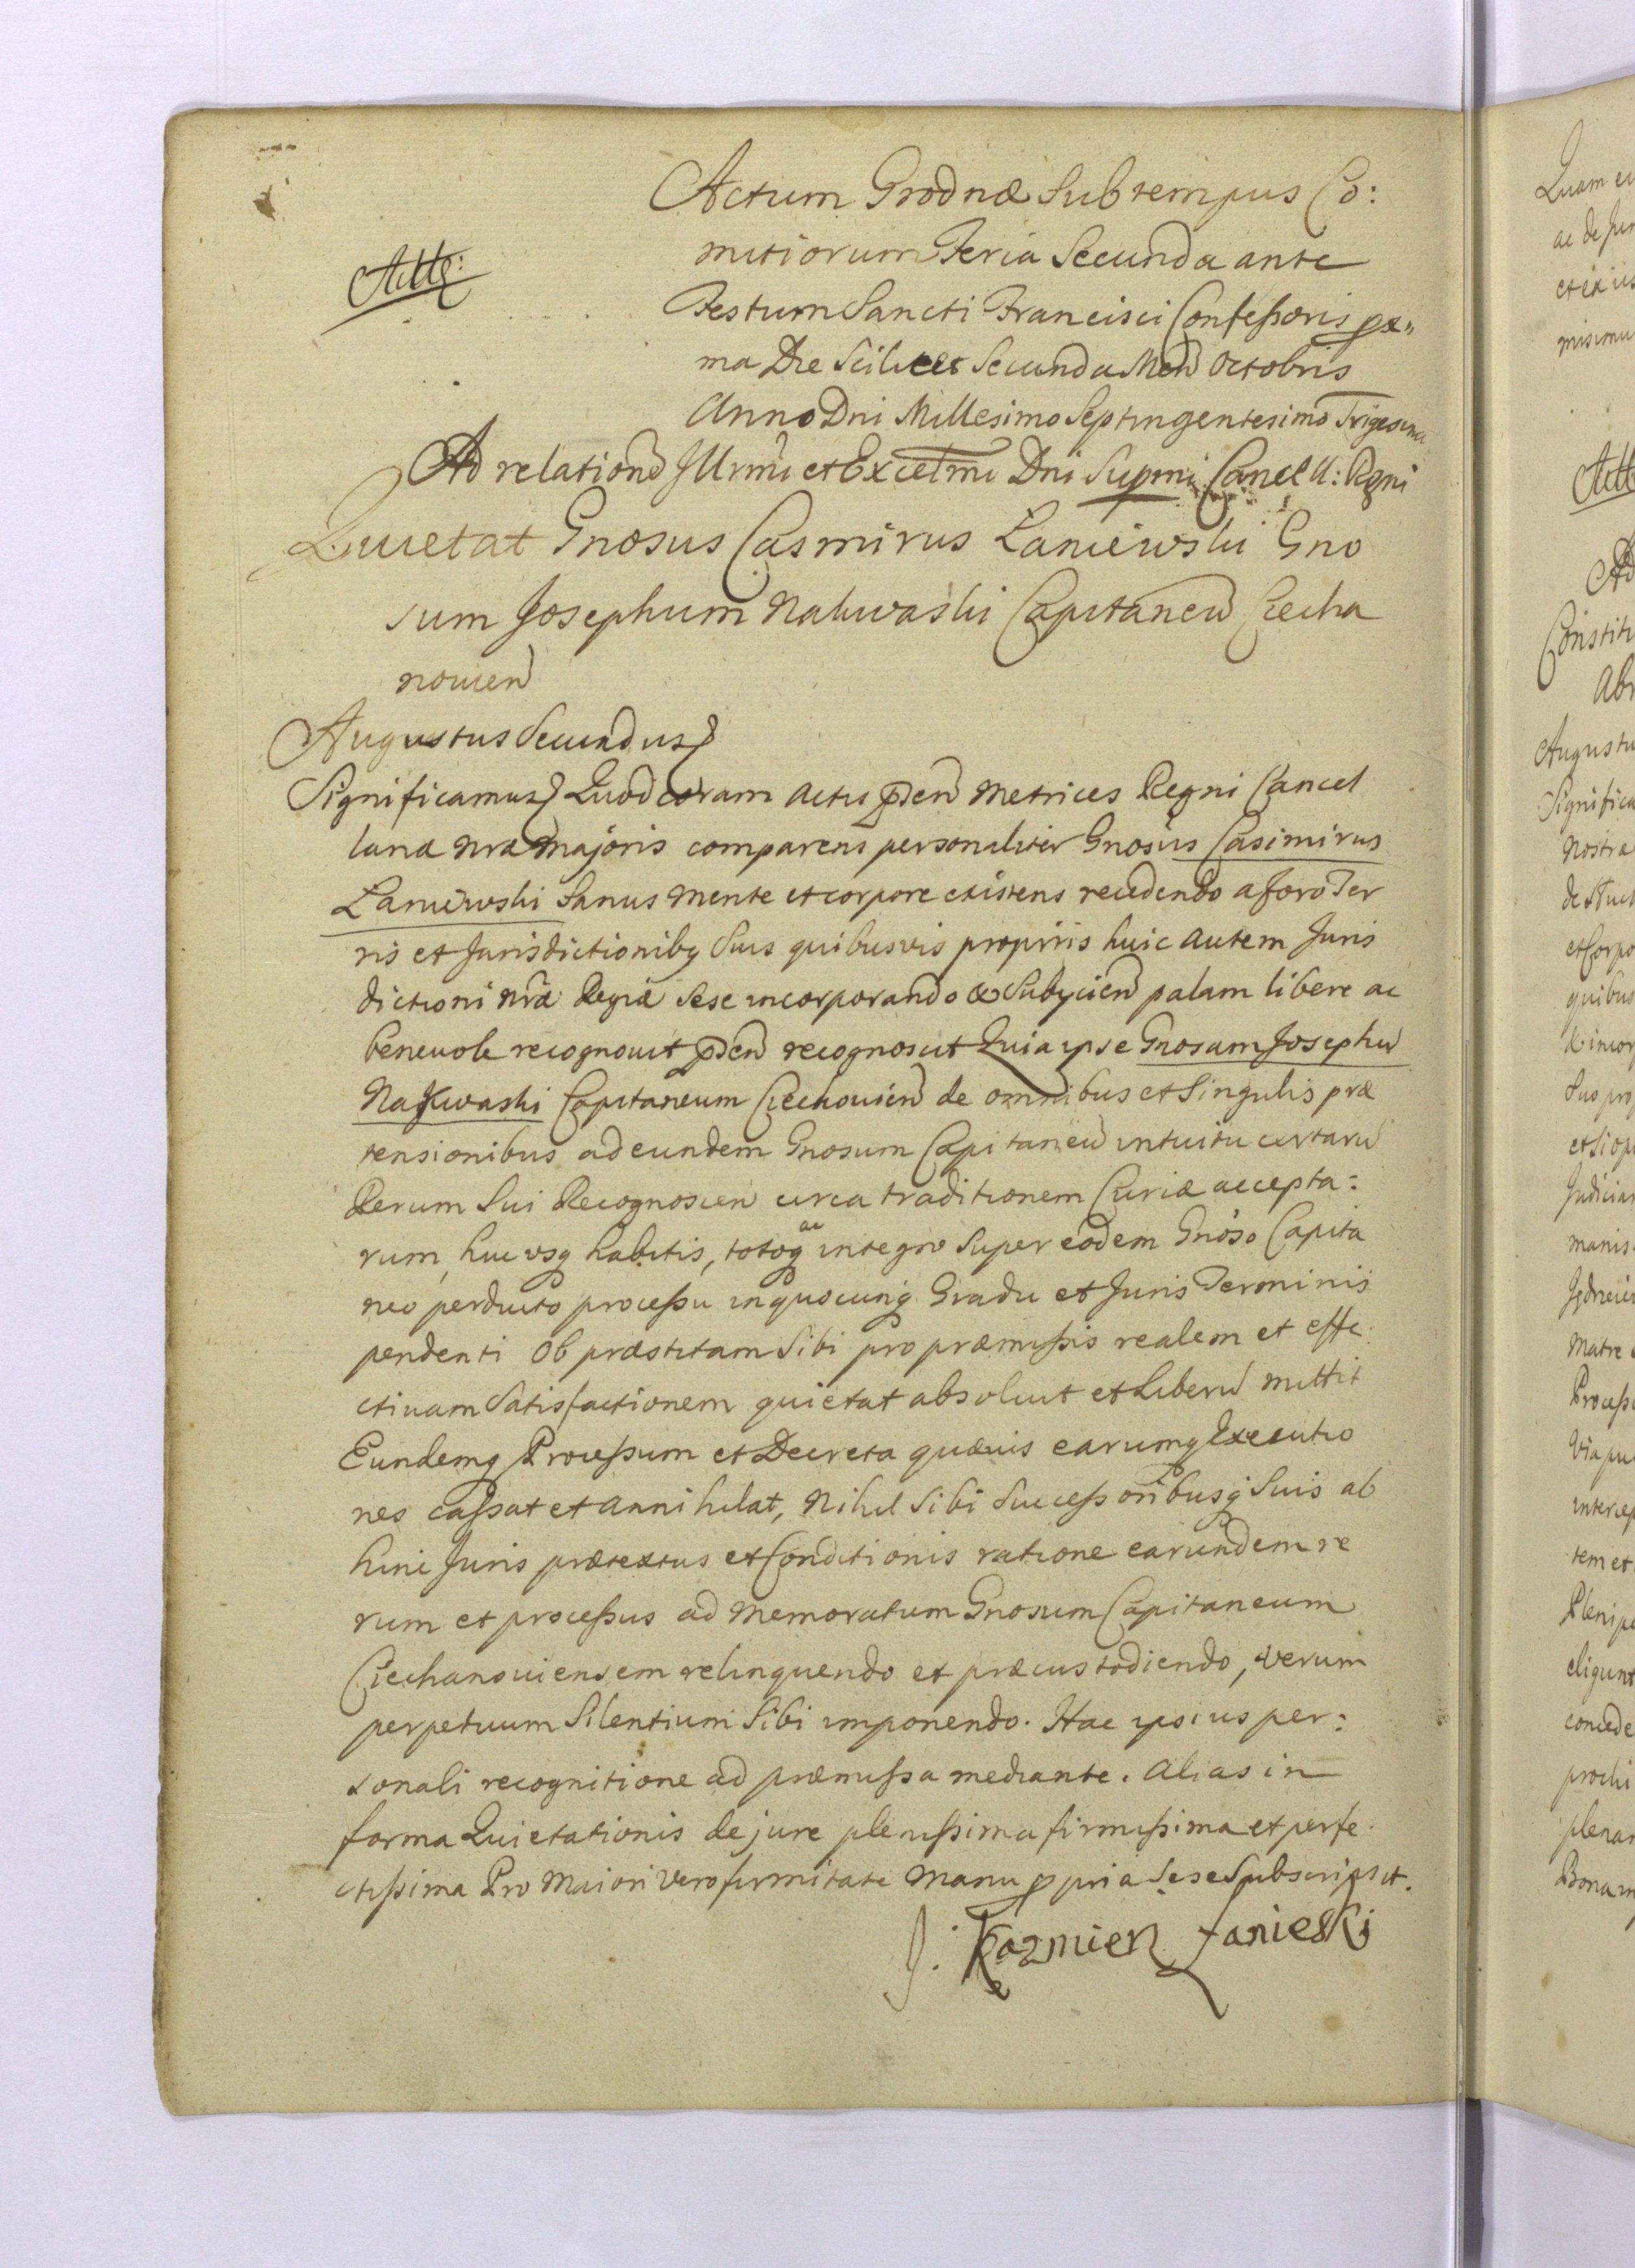 Actum Grodnæ Sub tempus Co:
mitiorum Feria Secunda ante
Actte:
Festum Sancti Francisci Confessoris px„
ma Die Scilicet Secunda Men Octobris
Anno Dni Millesimo Septingentesimo Trigesimo
Ad relatione Illrmi et Excelmi Dni Supmi Cancell: Regni
Quietat Gnosus Casmirus Łaniewski Gno
sum Josephum Nakwaski Capitaneu Ciecha
novien
Augustus Secundus
Significamus Quod coram Actis pden Metrices Regni Cancel
lariæ Nræ Majoris comparens personaliter Gnosus Casimirus
Łaniewski Sanus Mente et corpore existens recedendo a foro Ter
ris et Jurisdictionibq Suis quibusvis proprijs huic Autem Juris
dictioni Nræ Regiæ Sese incorporando & Subijcien palam libere ac
benevole recognovit pden recognoscit Quia ipse Gnosum Josephu
Nakwaski Capitaneum Ciechovien de omnibus et Singulis præ
tensionibus ad eundem Gnosum Capitaneu intuitu certaru
Rerum Sui Recognoscen circa traditionem Curiæ accepta:
rum, huc usq habitis, totoq ac integro Super eodem Gnoso Capita
neo perducto processu in quocunq Gradu et Juris Terminis
pendenti Ob præstitam Sibi pro præmissis realem et effe
ctivam Satisfactionem quietat absolvit et Liberu mittit
Eundemq Processum et Decreta quævis earumq Executio
nes cassat et annihilat, Nihil Sibi Successoribusq Suis ab
hinc Juris prætextus et Conditionis ratione earundem re
rum et processus ad Memoratum Gnosum Capitaneum
Ciechanoviensem relinquendo et præcustodiendo, verum
perpetuum Silentium Sibi imponendo. Hac ipsius per:
sonali recognitione ad præmissa mediante. Alias in
forma Quietationis de jure plenissima firmissima et perfe
ctissima Pro Maiori vero firmitate Manu ppria Sese Subscripsit.
J. Kazmierz Łanieski
Quam
ac de
et ea
Actt
Ad
Augustu
Significa
Nostra
quibus
manis
Matre
Process
Via pu
tem et
Plenipo
eligunt
concede
plenam
Bona